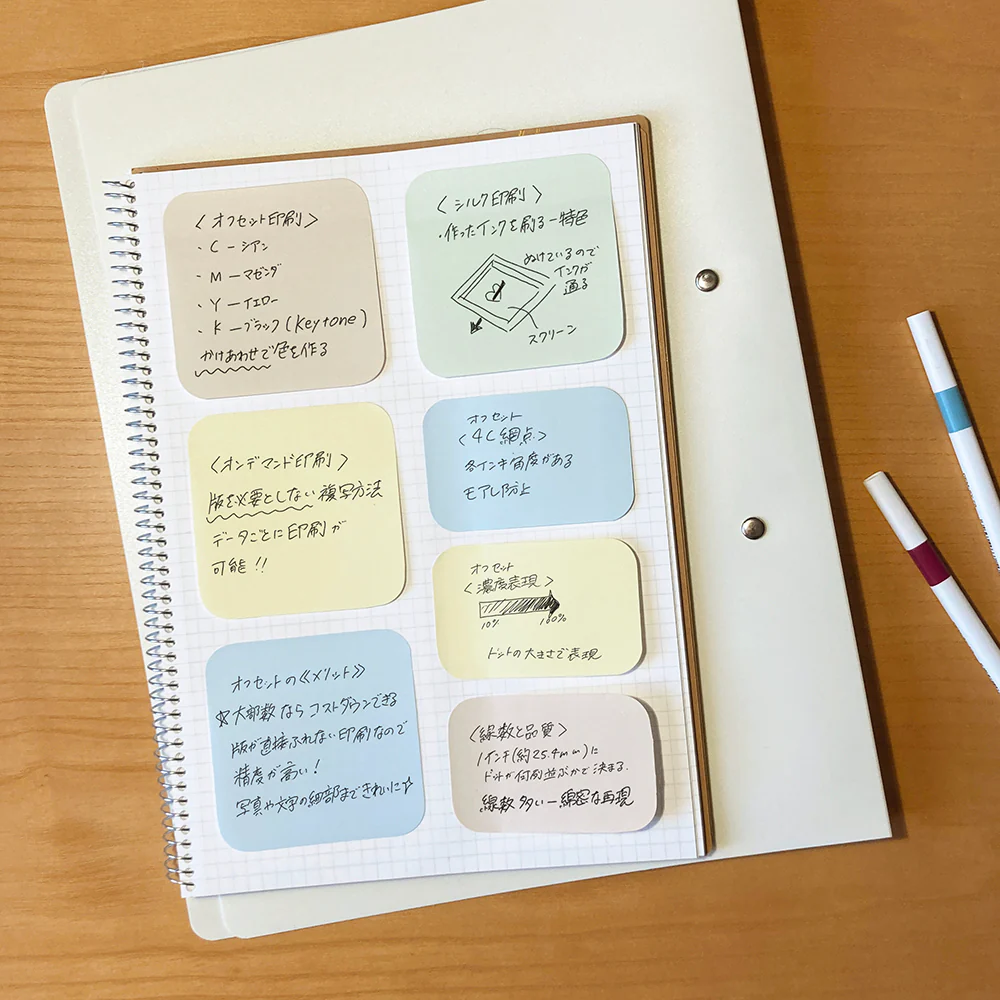 〈オフセット印刷〉
・C―シアン
・M―マゼンダ
・Y―イエロー
・K―ブラック(Keytone)
かけあわせで色を作る
〈オンデマンド印刷〉
版を必要としない複写方法
データごとに印刷が
可能!!
オフセットの《メリット》
☆大部数ならコストダウンできる
版が直接ふれない印刷なので
精度が高い!
写真や文字の細部まできれいに☆
〈シルク印刷〉
・作ったインクを刷る―特色
ぬけているので
インクが
通る
スクリーン
オフセット
〈4C網点〉
各インキ角度がある
モアレ防止
オフセット
〈濃度表現〉
10% 100%
ドットの大きさで表現
〈線数と品質〉
1インチ(約25.4mm)に
ドットが何列並ぶかで決まる.
線数多い―綿密な再現